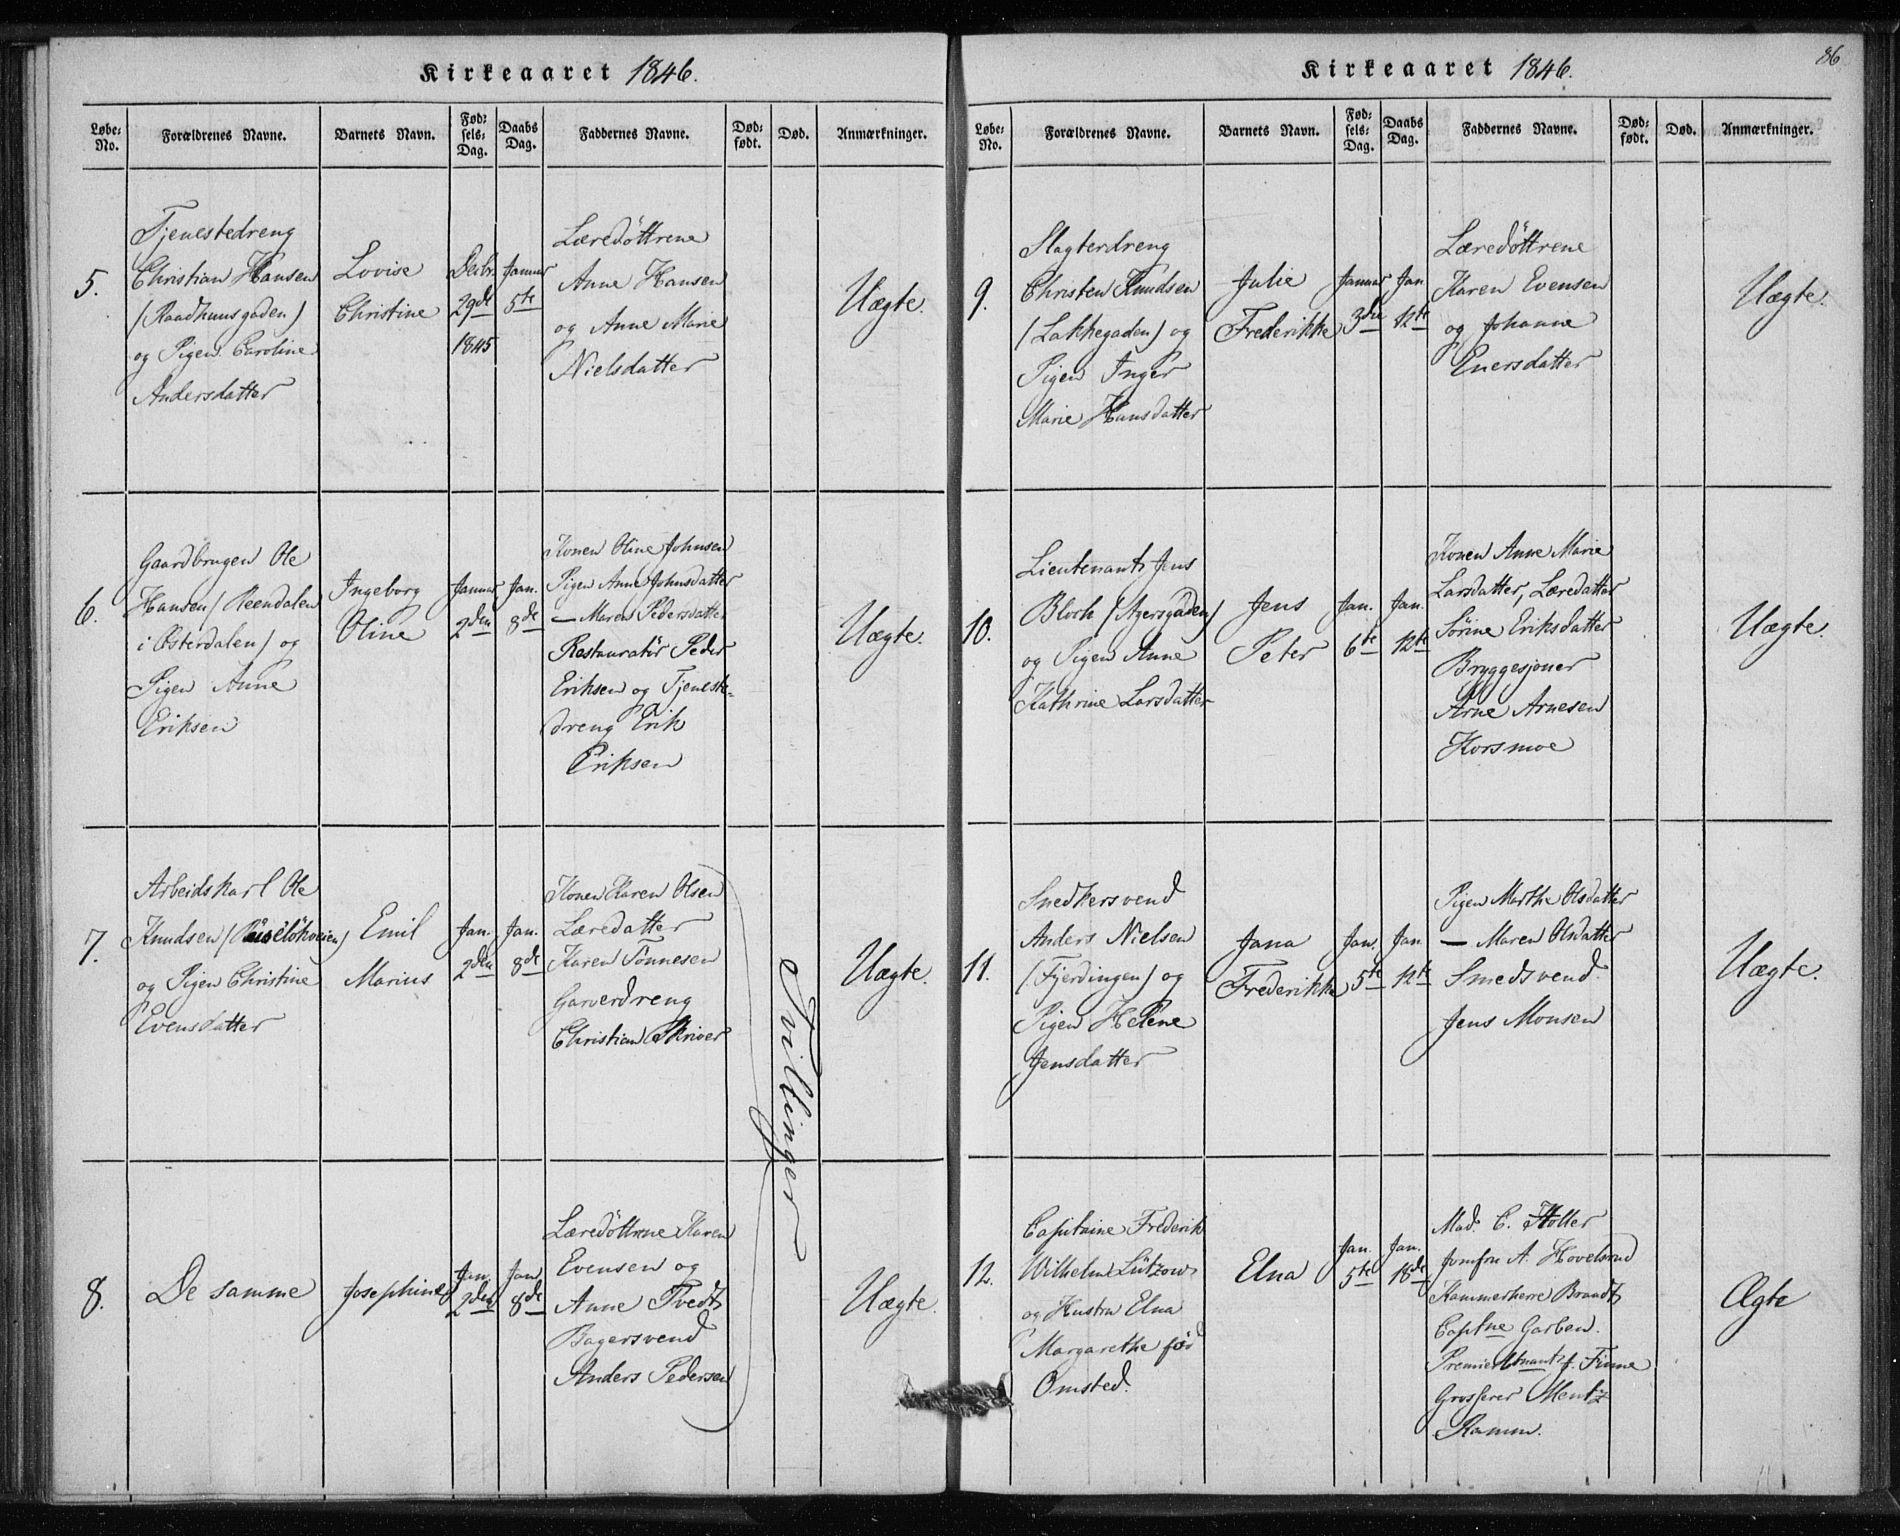 Kirkeaaret 1846.
Løbe-No. Forældrenes Navne. Barnets Navn. Fødsels-Dag. Daabs Dag. Faddernes Navne. Død-født. Død. Anmærkninger.
5.
Tjenestedreng
Christian Hansen
(Raadhuusgaden)
og Pigen Caroline
Andersdatter
Lovise
Christine
Decbr.
29de
1845
Januar
5te
Læredöttrene
Anne Hansen
og Anne Marie
Nielsdatter
Uægte.
6.
Gaardbrugen Ole
Hansen (Reendalen
i Österdalen) og
Pigen Anne
Eriksen
Ingeborg
Oline
Januar
2den
Jan.
8de
Konen Oline Johnsen
Pigen Anne Johnsdatter
— Maren Pedersdatter
Restauratör Peder
Eriksen og Tjeneste-
dreng Erik
Eriksen
Uægte.
7.
Arbeidskarl Ole
Knudsen (
og Pigen Christine
Evensdatter
Emil
Marius
Jan.
2den
Jan.
8de
Konen Karen Olsen
Læredatter
Karen Tönnesen
Garverdreng
Christian Skriver
Tvillinger
Uægte.
8.
De samme
Josephine
Jan.
2den
Jan.
8de
Læredöttrene Karen
Evensen og
Anne Tvedt
Bagersvend
Anders Pedersen
Uægte.
Kirkeaaret 1846.
86
Løbe-No. Forældrenes Navne. Barnets Navn. Fødsels-Dag. Daabs Dag. Faddernes Navne. Død-født. Død. Anmærkninger.
9.
Slagterdreng
Christen Knudsen
(Lakkegaden) og
Pigen Inger
Marie Hansdatter
Julie
Frederikke
Januar
3die
Jan.
12te
Læredöttrene
Karen Evensen
og Johanne
Enersdatter
Uægte.
10.
Lieutenant Jens
Bloch (Agersgaden)
og Pigen Anne
Kathrine Larsdatter
Jens
Peter
Jan.
6te
Jan.
12te
Konen Anne Marie
Larsdatter, Læredatter
Sörine Eriksdatter
Bryggesjouer
Arne Arnesen
Korsmoe
Uægte.
11.
Snedkersvend
Anders Nielsen
(Fjerdingen) og
Pigen Helene
Jensdatter
Jana
Frederikke
Jan.
5te
Jan.
12te
Pigen Marthe Olsdatter
— Maren Olsdatter
Smedsvend
Jens Monsen
Uægte.
12.
Capitaine Frederik
Wilhelm Lützow
og Hustru Elna
Margarethe föd
Omsted.
Elna
Jan.
5te
Jan.
18de
Mad. C. Holter
Jomfru A. Hovelsrud
Kammerherre Brandt
Captne Garben.
Finne
Grosserer Mentz
Ramm.
Ægte